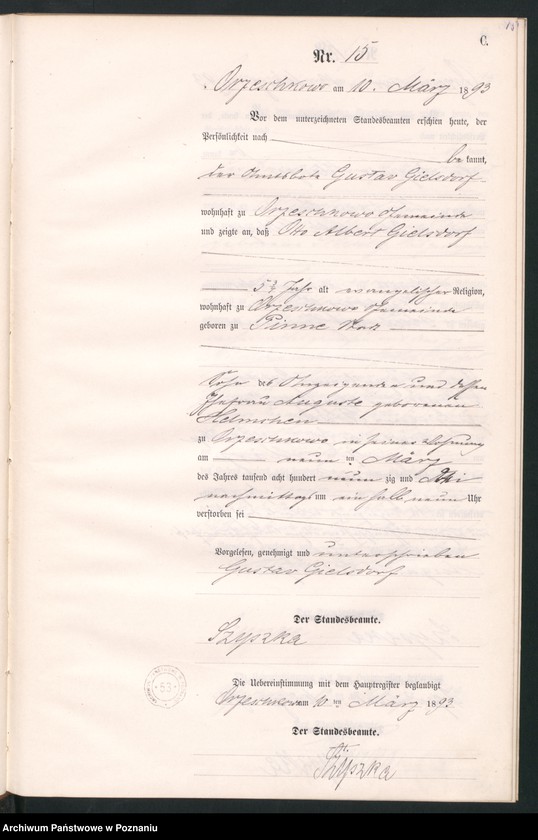 C.
Nr. 15
Orzeschkowo am 10. März 1893
Vor dem unterzeichneten Standesbeamten erschien heute, der
Persönlichkeit nach
be kannt,
der Amtsbote Gustav Gielsdorf
wohnhaft zu Orzeschkowo Gemeinde
und zeigte an, daß Otto Albert Gielsdorf
Jahr alt evangelischer Religion,
wohnhaft zu Orzeschkowo Gemeinde
geboren zu Pinne
Sohn des Anzeigenden und dessen
Ehefrau Auguste geborenen
Helmchen
zu Orzeschkowo in seiner Wohnung
am neun ten März
des Jahres tausend acht hundert neun zig und drei
nachmittags um ein halb neun Uhr
verstorben sei
Vorgelesen, genehmigt und unterschrieben
Gustav Gielsdorf
Der Standesbeamte.
Szyszka
Die Uebereinstimmung mit dem Hauptregister beglaubigt
Orzeschkowo am 10 ten März 1893
Der Standesbeamte.
Szyszka
53
Archiwum Państwowe w Poznaniu